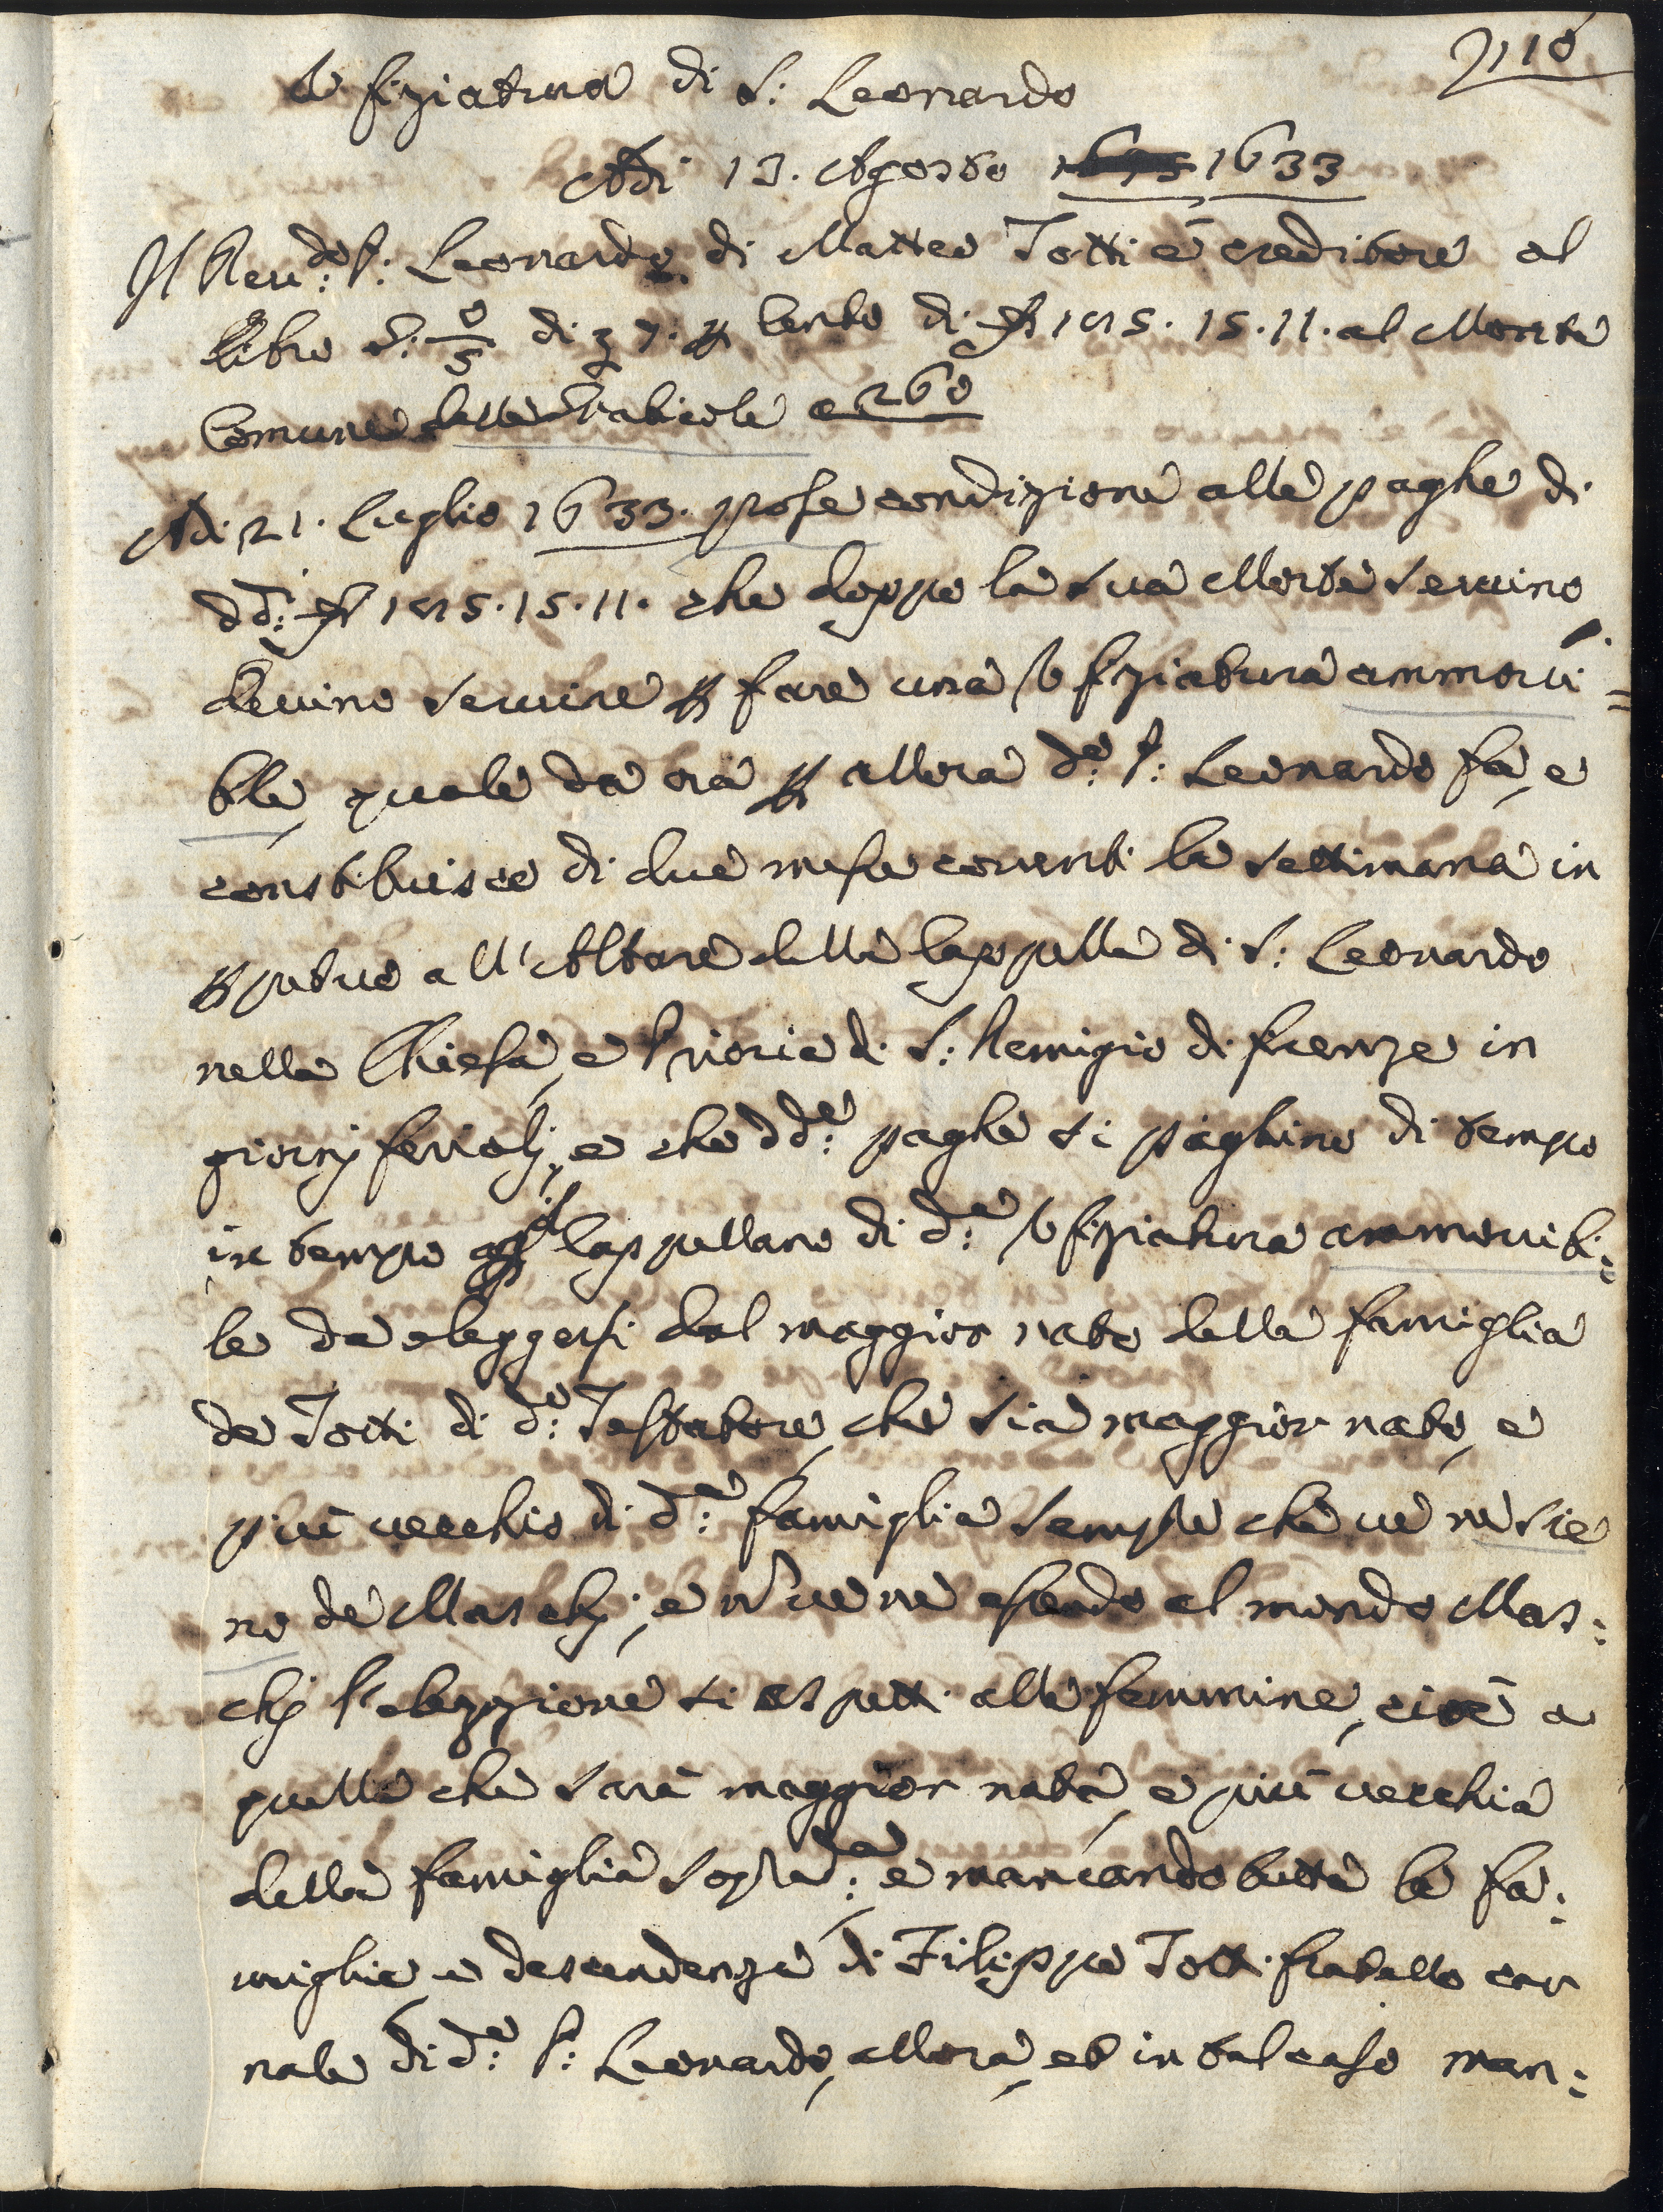 116
Ufiziatura di S: Leonardo
Adi 13. Agosto 1675 1633
Il Reu:do P: Leonardo di Matteo Totti è creditore al
libro S. 0/5 di 3 7. p Cento di 1015. 15. 11. al Monte
Comune delle Graticole a 260
Adi 21. Luglio 1633. pose condizione alle paghe di
dd: 1015. 15. 11. che doppo la sua Morte seruino
deuino seruire p fare una Vfiziatura ammoui=
bile, quale da ora p allora do: P: Leonardo fa, e
constituisce di due messe correnti la settimana in
ppetuo all'Altare della Cappella di S: Leonardo
nella Chiesa, e Prioria di S: Remigio di firenze in
giornj ferialj, e che dde: paghe si paghino di tempo
in tempo al Cappellano di da: Vfiziatura ammouibi=
le da eleggersi dal maggior nato della famiglia
de Totti di do: Testatore, che sia maggior nato, e
più uecchio di da: famiglia sempre che ue ne sie
no de Maschj; e nō ue ne essendo al mondo Mas:
chj l'elezzione si aspetti alle femmine, cioè a
quella che sarà maggior nata, e più uecchia
della famiglia sopra:da e mancando tutte le fa:
miglie, e descendenze di Filippo Totti fratello car
nale di do: P: Leonardo, allora, et in tal caso man: